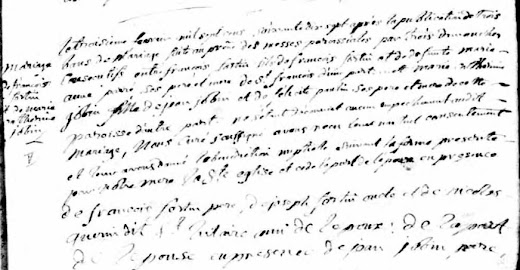 Mariage
de françois
fortin
et de marie
Catherine
jobin
Le troisieme fevrier mil sept cens soixante dix sept après la publication de trois
bans de Mariage faite au prône des messes paroissiales par trois dimanches
Consecutifs entre françois fortin fils de françois fortin et de defunte marie
anne paré ses pere et mere de st françois d'une part et marie Catherine
jobin fille de jean jobin et de ses pere et mere de cette
paroisse d'autre part ne s'étant decouvert aucun empechement audit
Mariage, Nous Curé soussigné avons reçu leur mutuel consentement
et leur avons donné la benediction nuptiale suivant la forme prescrite
par notre mere la Ste eglise et ce de la part de l'epoux en presence
de françois fortin pere, de joseph fortin oncle et de nicolas
dit St hilaire ami de l'epoux; de la part
de l'epouse en presence de jean jobin pere